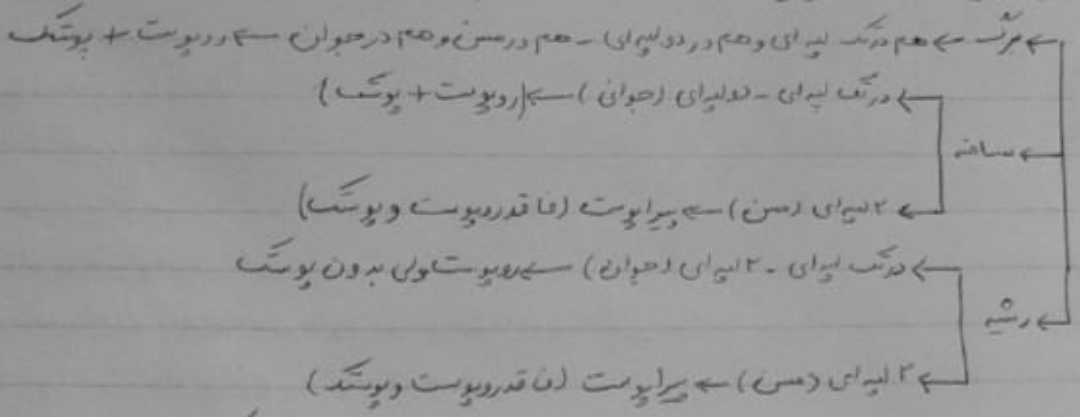 برگ ← هم در تک لپه ای و هم در دولپه ای - هم در مسن و هم در جوان ← روپوست + پوستک
در تک لپه ای - دولپه ای (جوان) ← (روپوست + پوستک)
ساقه
۲ لپه ای (مسن) ← پیراپوست (فاقد روپوست و پوستک)
در تک لپه ای - ۲ لپه ای (جوان) ← روپوست ولی بدون پوستک
ریشه
۲ لپه ای (مسن) ← پیراپوست (فاقد روپوست و پوستک)